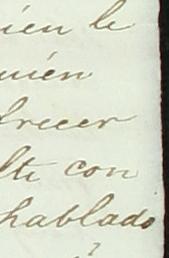 ien le
uien
frecer
lti con
hablado